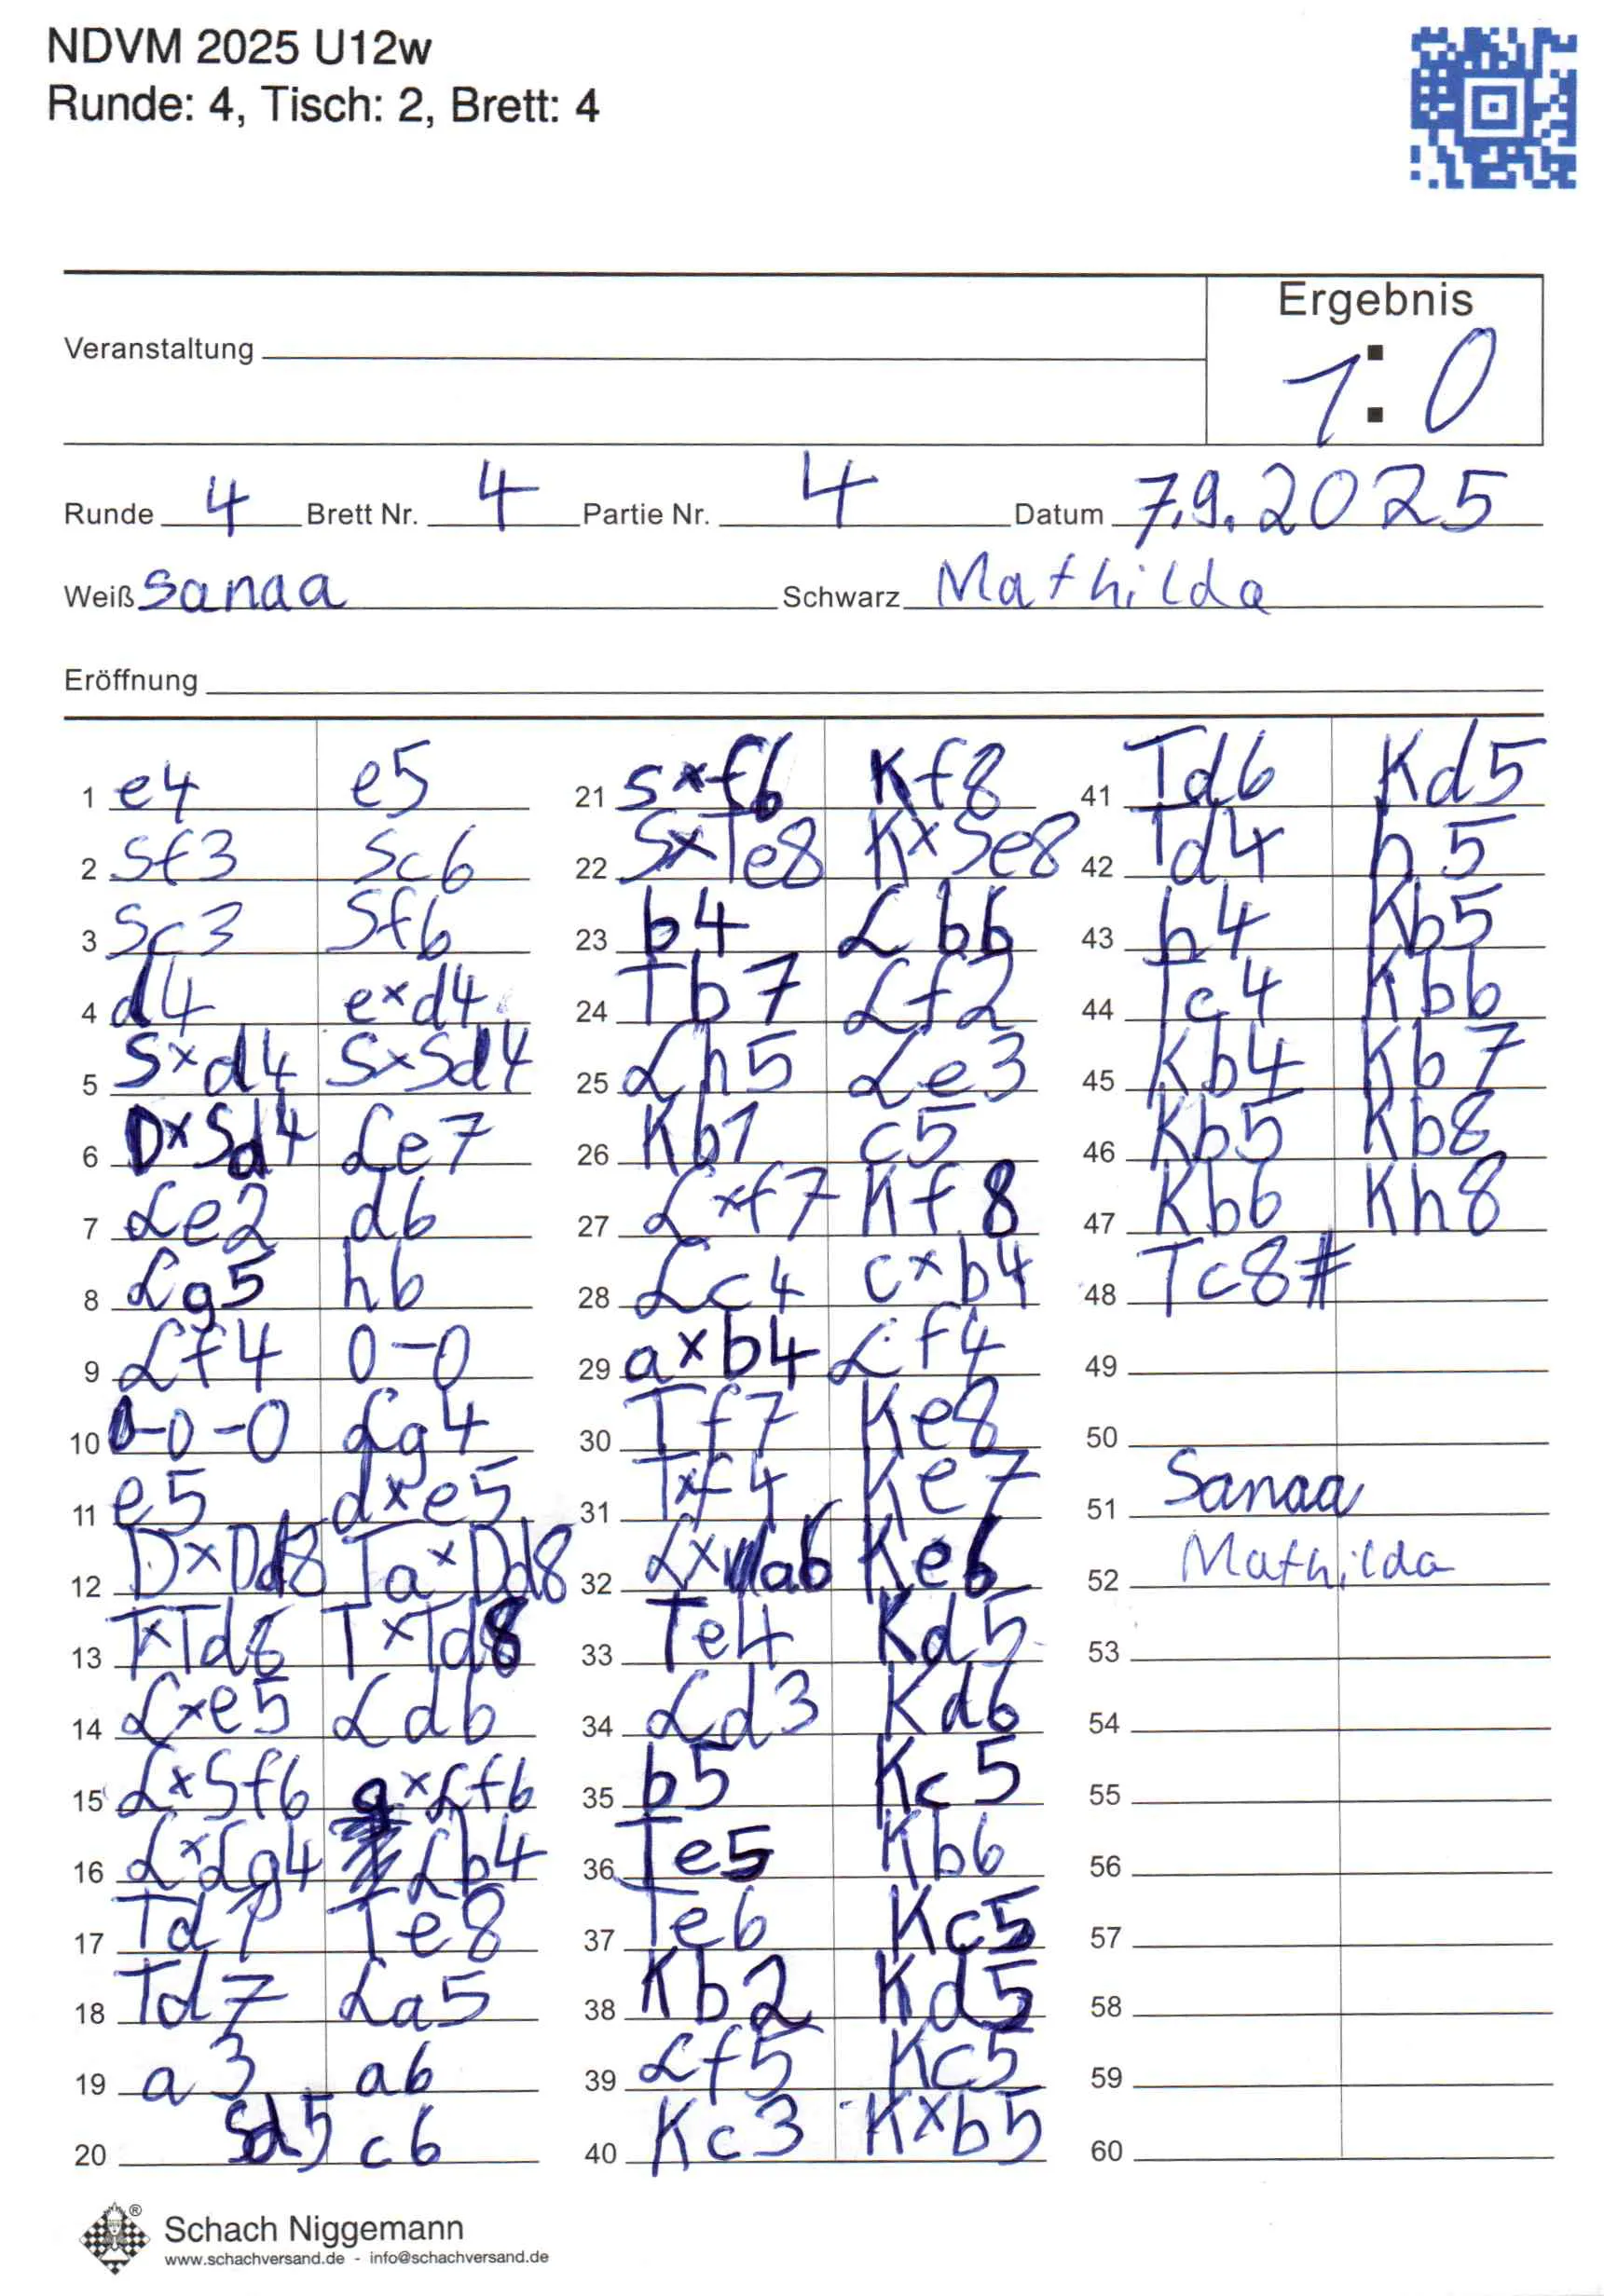 NDVM 2025 U12w
Runde: 4, Tisch: 2, Brett: 4
Ergebnis
1:0
Veranstaltung
Runde 4 Brett Nr. 4 Partie Nr. 4 Datum 7.9.2025
Weiß Sanaa Schwarz Mathilda
Eröffnung
1 e4 e5
2 Sf3 Sc6
3 Sc3 Sf6
4 d4 exd4
5 Sxd4 SxSd4
6 DxSd4 Le7
7 Le2 d6
8 Lg5 h6
9 Lf4 0-0
10 0-0-0 Lg4
11 e5 dxe5
12 DxDd8 TaxDd8
13 TxTd8 TxTd8
14 Lxe5 Ld6
15 LxSf6 gxLf6
16 LxLg4 Lb4
17 Td1 Te8
18 Td7 La5
19 a3 a6
20 Sd5 c6
21 Sxf6 Kf8
22 SxTe8 KxSe8
23 b4 Lb6
24 Tb7 Lf2
25 Lh5 Le3
26 Kb1 c5
27 Lxf7 Kf8
28 Lc4 cxb4
29 axb4 Lf4
30 Tf7 Ke8
31 Txf4 Ke7
32 Lxa6 Ke6
33 Te4 Kd5
34 Ld3 Kd6
35 b5 Kc5
36 Te5 Kb6
37 Te6 Kc5
38 Kb2 Kd5
39 Lf5 Kc5
40 Kc3 Kxb5
41 Td6 Kd5
42 Td4 h5
43 h4 Kb5
44 Tc4 Kb6
45 Kb4 Kb7
46 Kb5 Kb8
47 Kb6 Kh8
48 Tc8#
49
50
51 Sanaa
52 Mathilda
53
54
55
56
57
58
59
60
Schach Niggemann
www.schachversand.de - info@schachversand.de